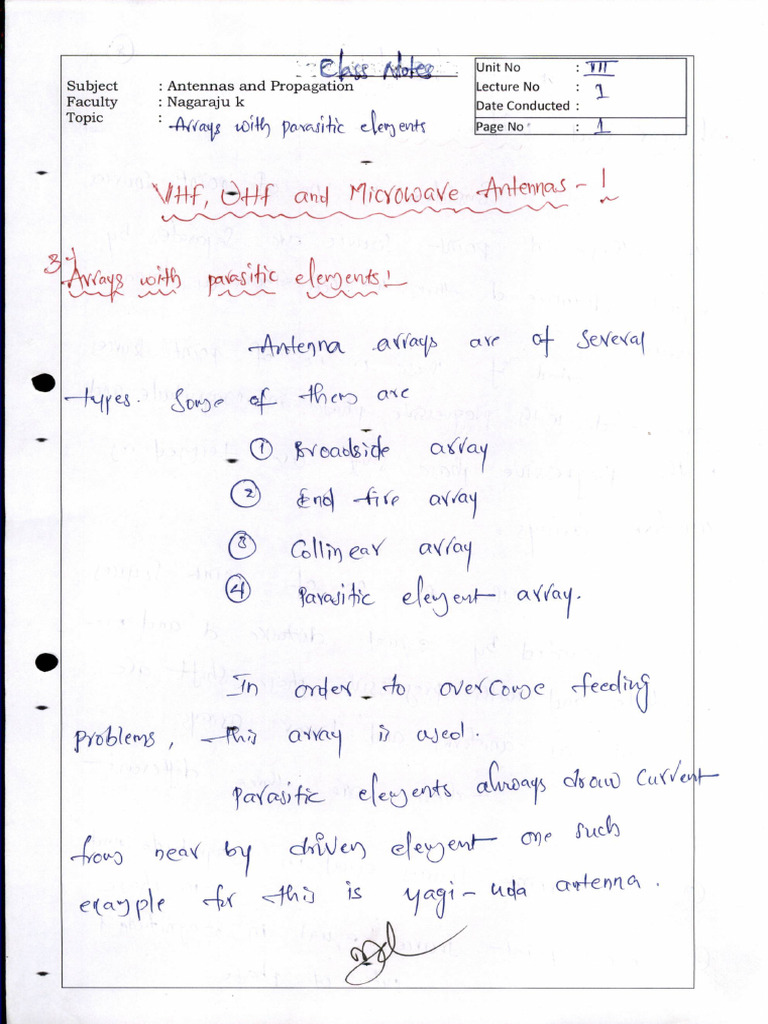 Class Notes
Subject : Antennas and Propagation
Faculty : Nagaraju k
Topic : Arrays with parasitic elements
Unit No : VII
Lecture No : 1
Date Conducted :
Page No : 1
VHf, UHf and Microwave Antennas - !
3)
Arrays with parasitic elements!
Antenna arrays are of several
types. Some of them are
① Broadside array
② End fire array
③ Collinear array
④ Parasitic element array.
In order to overcome feeding
problems, this array is used.
Parasitic elements always draw current
from near by driven element one such
example for this is yagi-uda antenna.